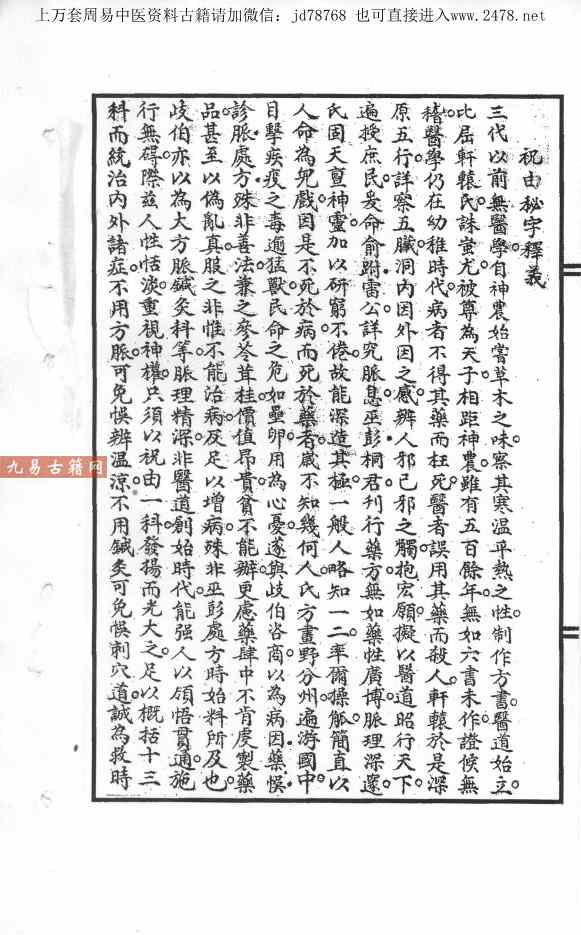 上万套周易中医资料古籍请加微信：jd78768 也可直接进入www.2478.net
祝由秘字釋義
三代以前無醫學自神農始嘗草木之味察其寒温平熱之性制作方書醫道始立。
比屈軒轅氏誅蚩尤被尊為天子相距神農雖有五百餘年無如六書未作證候無
稽醫學仍在幼稚時代病者不得其藥而枉死醫者誤用其藥而殺人軒轅於是深
原五行詳察五臟洞内因外因之感辨人邪己邪之觸抱宏願擬以醫道昭行天下。
遍授庶民爰命俞跗雷公詳究脈息巫彭桐君刊行藥方無如藥性廣博脈理深邃
氏固天亶神靈加以研窮不倦故能深造其極一般人略知一二率爾操觚簡直以
人命為兒戲因是不死於病而死於藥者歲不知幾何人氏方畫野分州遍游國中
目擊疾疫之毒逾猛獸民命之危如壘卵用為心憂遂與歧伯咨商以為病因藥悞
診脈處方殊非善法兼之麥苓茸桂價值昂貴貧不能辦更慮藥肆中不肯虔製藥
品甚至以偽亂真服之非惟不能治病反足以增病殊非巫彭處方時始料所及也
歧伯亦以為大方脈鍼灸科等脈理精深非醫道創始時代能强人以領悟貫通施
行無碍際兹人性恬淡重視神權只須以祝由一科發揚而光大之足以概括十三
科而統治内外諸症不用方脈可免悞辨温涼不用鍼灸可免悞刺穴道誠為救時
九易古籍网